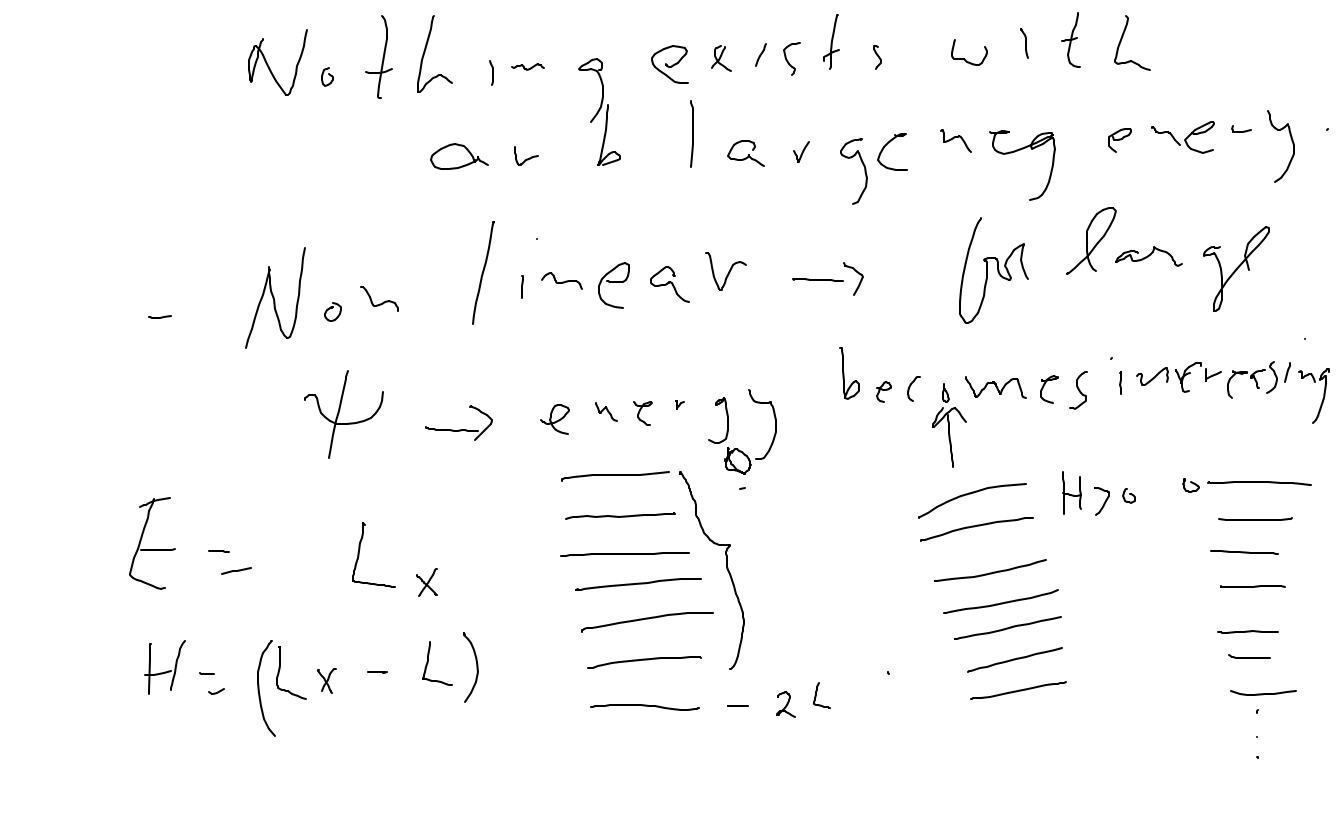 Nothing exists with
arb large neg energy.
- Non linear → for large
ψ → energy becomes increasing
0
H>0 0
E = Lx
H = (Lx - L)
- 2L